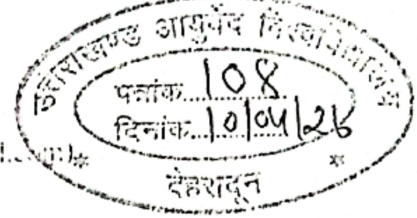 उत्तराखण्ड आयुर्वेद विश्वविद्यालय
पत्रांक 108
दिनांक 10/04/26
देहरादून